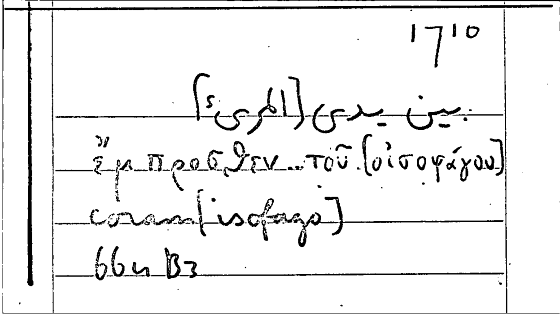 1710
بين يدى [المرىء]
ἔμπροσθεν.. τοῦ [οἰσοφάγου]
coram [isofago]
66u B3